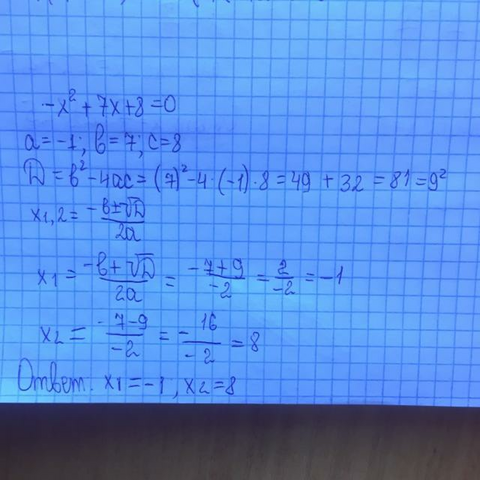 -x² + 7x + 8 = 0
a = -1; b = 7; c = 8
D = b² - 4ac = (7)² - 4·(-1)·8 = 49 + 32 = 81 = 9²
x1,2 = (-b ± √D)/2a
x1 = (-b + √D)/2a = (-7 + 9)/-2 = 2/-2 = -1
x2 = (-7 - 9)/-2 = -16/-2 = 8
Ответ: x1 = -1, x2 = 8